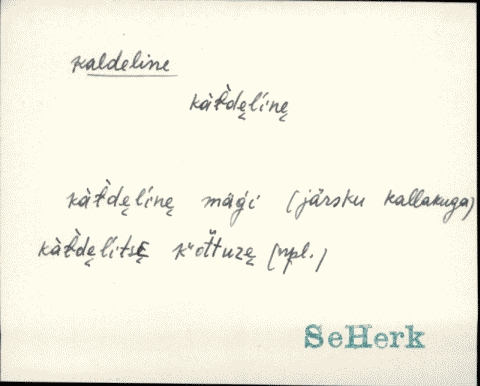 kaldeline
kàt̀dęlínę
kàt̀dęlínę mäǵi (järsku kallakuga)
kàt̀dęlítsę (npl.)
SeHerk